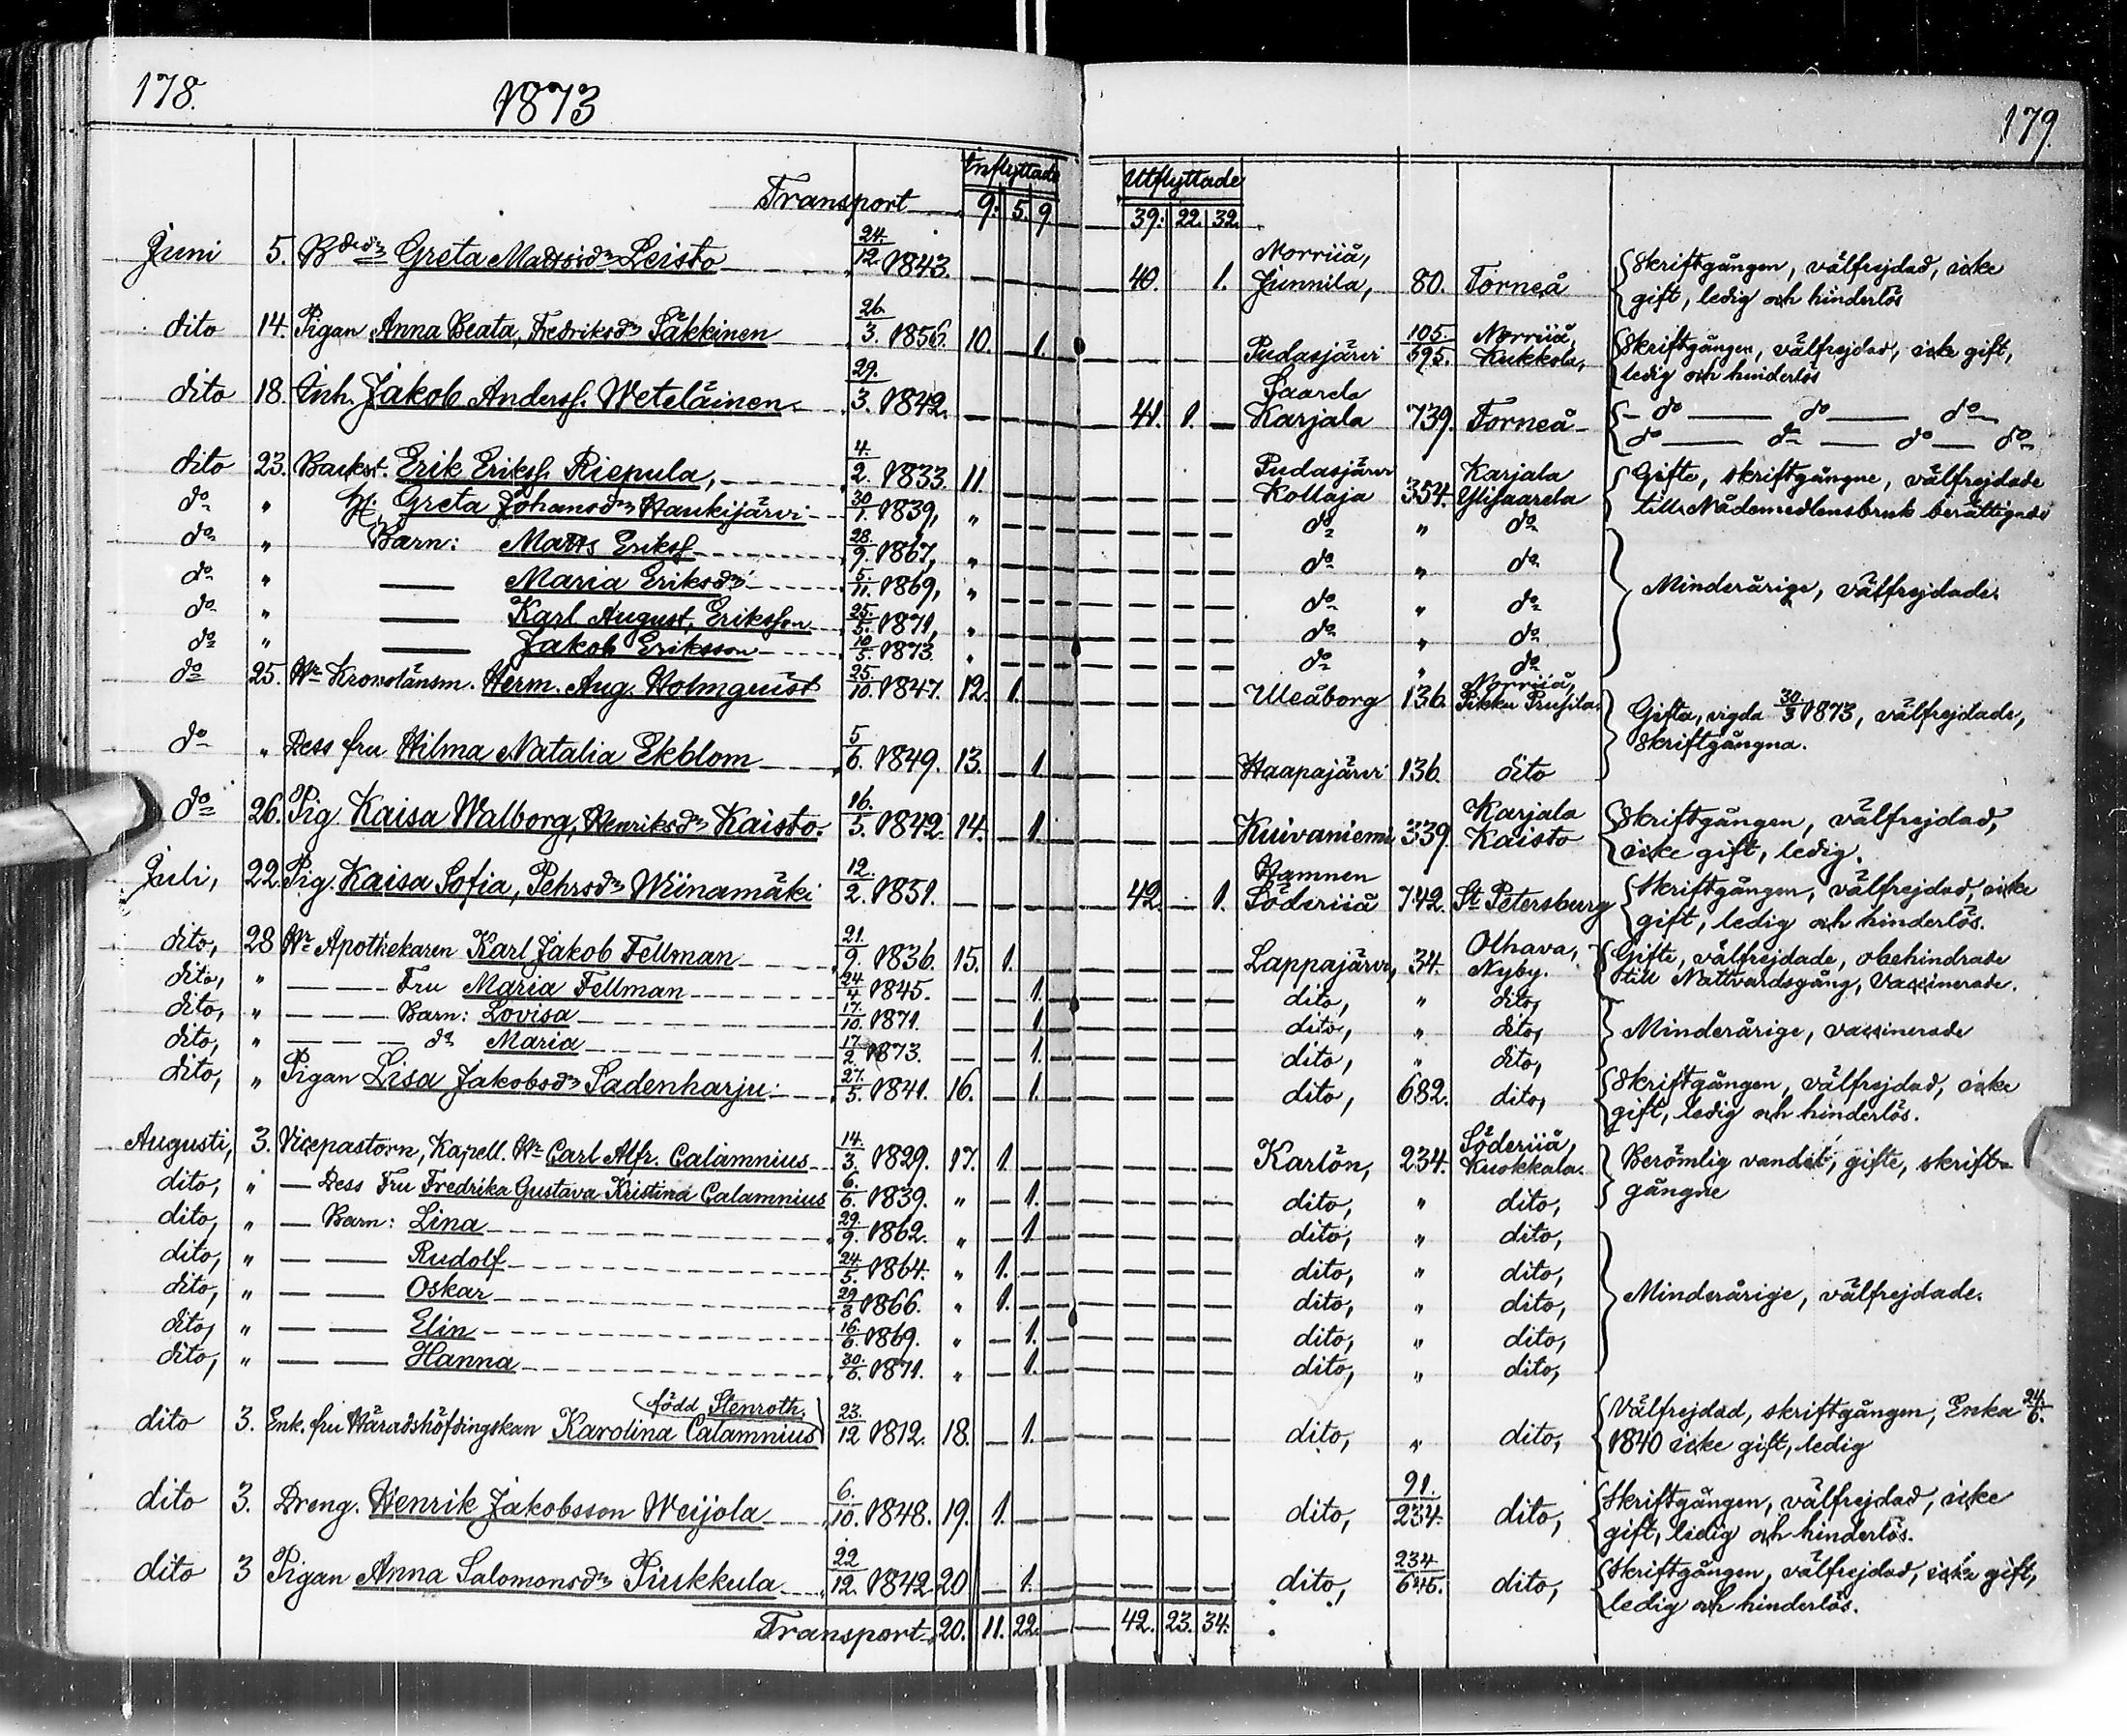 178. 1873 179.
Inflyttade Utflyttade
Transport 9. 5. 9. 39. 22. 32.
Juni 5. Greta Mattsdr Leisto 24/12 1843. 40. 1. Norriiå, Junnila, 80. Torneå Skriftgången, välfrejdad, icke
gift, ledig och hinderlös
dito 14. Pigan Anna Beata, Fredriksdr Säkkinen 26/3. 1856. 10. 1. Pudasjärvi 105./595. Norriiå, Kukkola, Skriftgången, välfrejdad, icke gift,
ledig och hinderlös
dito 18. Inh. Jakob Anderss. Weteläinen 29./3. 1842. 41. 1. Saarela Karjala 739. Torneå do do do
do do do do
dito 23. Backst. Erik Erikss. Riepula, 4./2. 1833. 11. Pudasjärvi Kollaja 354. Karjala Ylisaarela Gifte, skriftgångne, välfrejdade
do " H. Greta Johansdr Haukijärvi 30/1. 1839, " do " do till Nådemedlensbruk berättigade
do " Barn: Matts Erikss. 28./9. 1867, " do " do
do " Maria Eriksdr 5./11. 1869, " do " do Minderårige, välfrejdade.
do " Karl August, Eriksson 25./5. 1871, " do " do
do " Jakob Eriksson 10/5. 1873. " do " do
do 25. Hr Kronolänsm. Herm. Aug. Holmquist 25./10. 1847. 12. 1. Uleåborg 136. Norriiå, Pikku Pruſila. Gifta, vigda 30/3 1873, välfrejdade,
skriftgångna.
do " Dess fru Hilma Natalia Ekblom 5/6. 1849. 13. 1. Haapajärvi 136. dito
do 26. Pig Kaisa Walborg, Henriksdr Kaisto. 16./5. 1842. 14. 1. Kuivaniemi 339. Karjala Kaisto Skriftgången, välfrejdad,
icke gift, ledig.
Juli, 22. Pig. Kaisa Sofia, Pehrsdr Wiinamäki 12./2. 1851. 42. 1. Hamnen Söderiiå 742. St Petersburg Skriftgången, välfrejdad, icke
gift, ledig och hinderlös.
dito, 28 Hr Apothekaren Karl Jakob Fellman 21./9. 1836. 15. 1. Lappajärvi, 34. Olhava, Nyby. Gifte, välfrejdade, obehindrade
dito, " Fru Maria Fellman 24/4 1845. 1. dito, " dito, till Nattvardsgång, vaccinerade.
dito, " Barn: Lovisa 17./10. 1871. 1. dito, " dito, Minderårige, vaccinerade
dito, " do Maria 17./2. 1873. 1. dito, " dito,
dito, " Pigan Lisa Jakobsdr Sadenharju 27./5. 1841. 16. 1. dito, 682. dito, Skriftgången, välfrejdad, icke
gift, ledig och hinderlös.
Augusti, 3. Vicepastorn, Kapell. Hr Carl Alfr. Calamnius 14./3. 1829. 17. 1. Karlön, 234. Söderiiå, Kuokkala. Berömlig vandel, gifte, skrift-
dito, " Dess Fru Fredrika Gustava Kristina Calamnius 6./6. 1839. " 1. dito, " dito, gångne
dito, " Barn: Lina 29./9. 1862. " 1. dito, " dito,
dito, " Rudolf 24./5. 1864. " 1. dito, " dito,
dito, " Oskar 29/3 1866. " 1. dito, " dito, Minderårige, välfrejdade.
dito, " Elin 16./6. 1869. " 1. dito, " dito,
dito, " Hanna 30./6. 1871. " 1. dito, " dito,
född Stenroth.
dito 3. Enk. fru Häradshöfdingskan Karolina Calamnius 23./12 1812. 18. 1. dito, " dito, Välfrejdad, skriftgången, Enka 24./6.
1840 icke gift, ledig
dito 3. Dreng. Henrik Jakobsson Weijola 6./10. 1848. 19. 1. dito, 91./234. dito, Skriftgången, välfrejdad, icke
gift, ledig och hinderlös.
dito 3 Pigan Anna Salomonsdr Piukkula 22/12. 1842 20 1. dito, 234/645. dito, Skriftgången, välfrejdad, icke gift,
ledig och hinderlös.
Transport 20. 11. 22. 42. 23. 34.